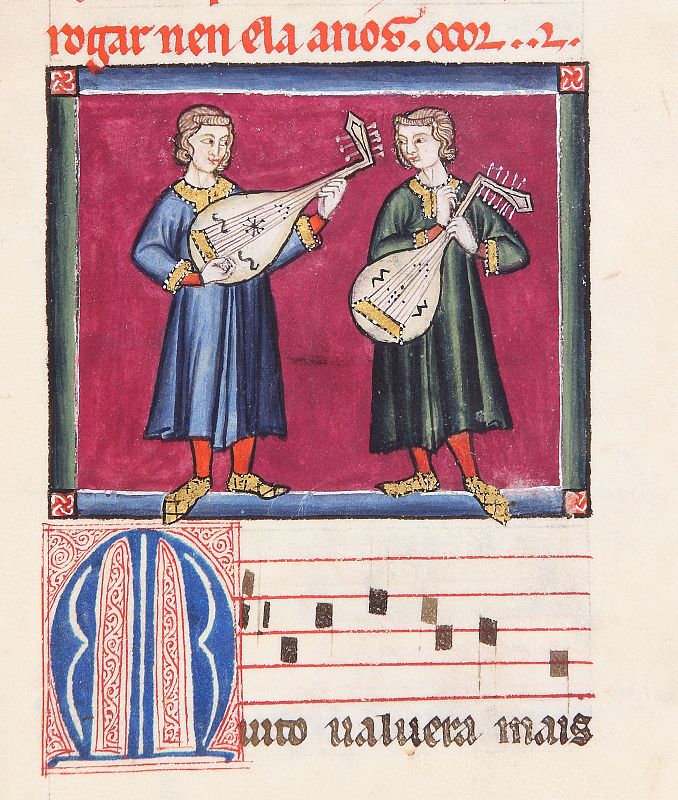 rogar nen ela anos.
Muito ualuera mais